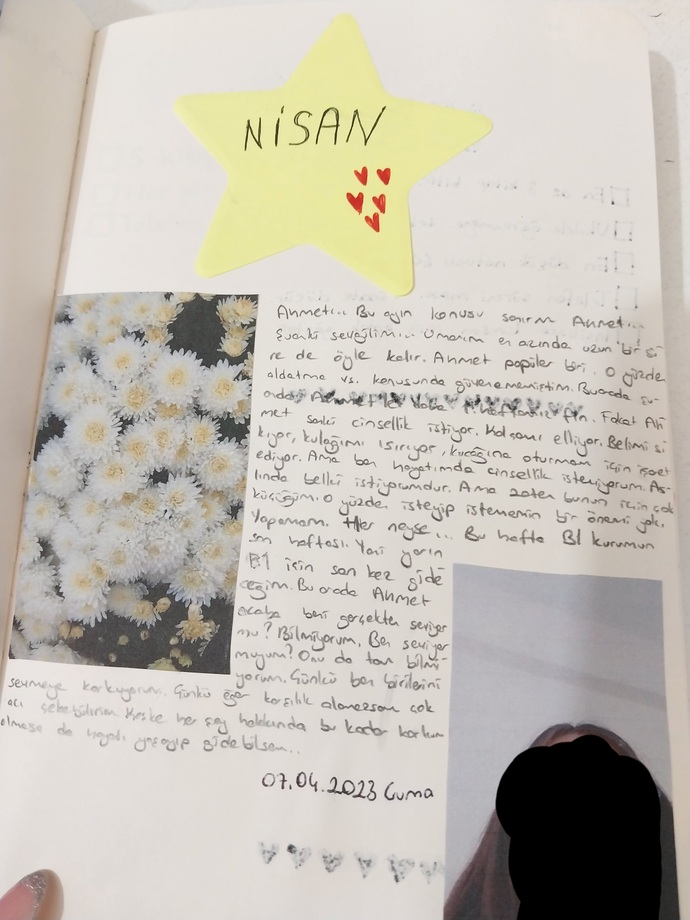 NİSAN
Ahmet... Bu ayın konusu sanırım Ahmet...
Çünkü sevgilim... Umarım en azında uzun bir sü
re de öyle kalır. Ahmet popüler biri. O yüzden
aldatma vs. konusunda güvenememiştim. Bu arada şu
Fakat Ah
met sanki cinsellik istiyor. Kalçamı elliyor. Belimi sı
kıyor, kulağımı ısırıyor, kucağına oturmam için işaret
ediyor. Ama ben hayatımda cinsellik istemiyorum. As
lında belki istiyorumdur. Ama zaten bunun için çok
küçüğüm. O yüzden isteyip istememin bir önemi yok.
Yapamam. Her neyse... Bu hafta B1 kurumun
son haftası. Yani yarın
B1 için son kez gide
ceğim. Bu arada Ahmet
acaba beni gerçekten seviyor
mu? Bilmiyorum. Ben seviyor
muyum? Onu da tam bilmi
yorum. Çünkü ben birilerini
sevmeye korkuyorum. Çünkü eğer karşılık alamazsam çok
acı çekebilirim. Keske her şey hakkında bu kadar korkum
olmasa da hayatı yaşayıp gidebilsem...
07.04.2023 Cuma